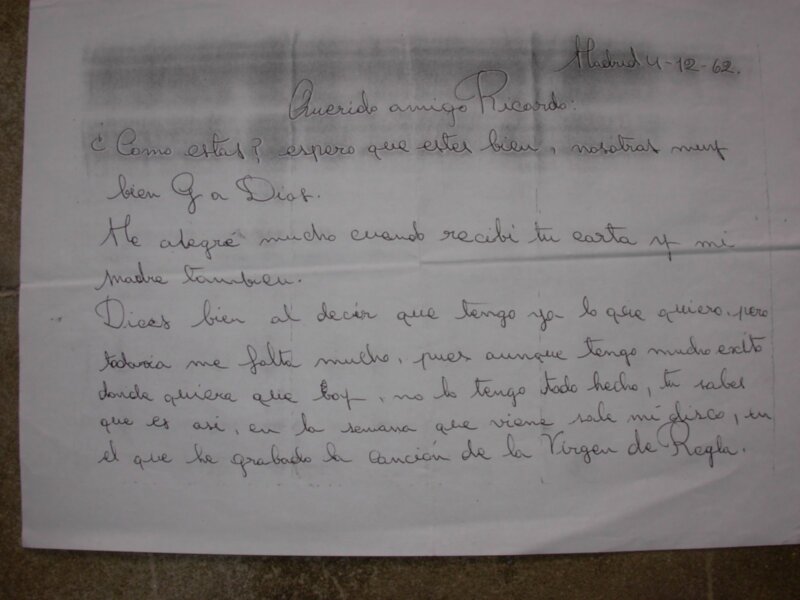 Madrid 4-12-62.
Querido amigo Ricardo:
¿Como estas? espero que estes bien, nosotras muy
bien G a Dios.
Me alegré mucho cuando recibí tu carta y mi
madre tambien.
Dices bien al decir que tengo ya lo que quiero, pero
todavia me falta mucho, pues aunque tengo mucho exito
donde quiera que boy, no lo tengo todo hecho, tu sabes
que es asi, en la semana que viene sale mi disco, en
el que he grabado la canción de la Virgen de Regla.